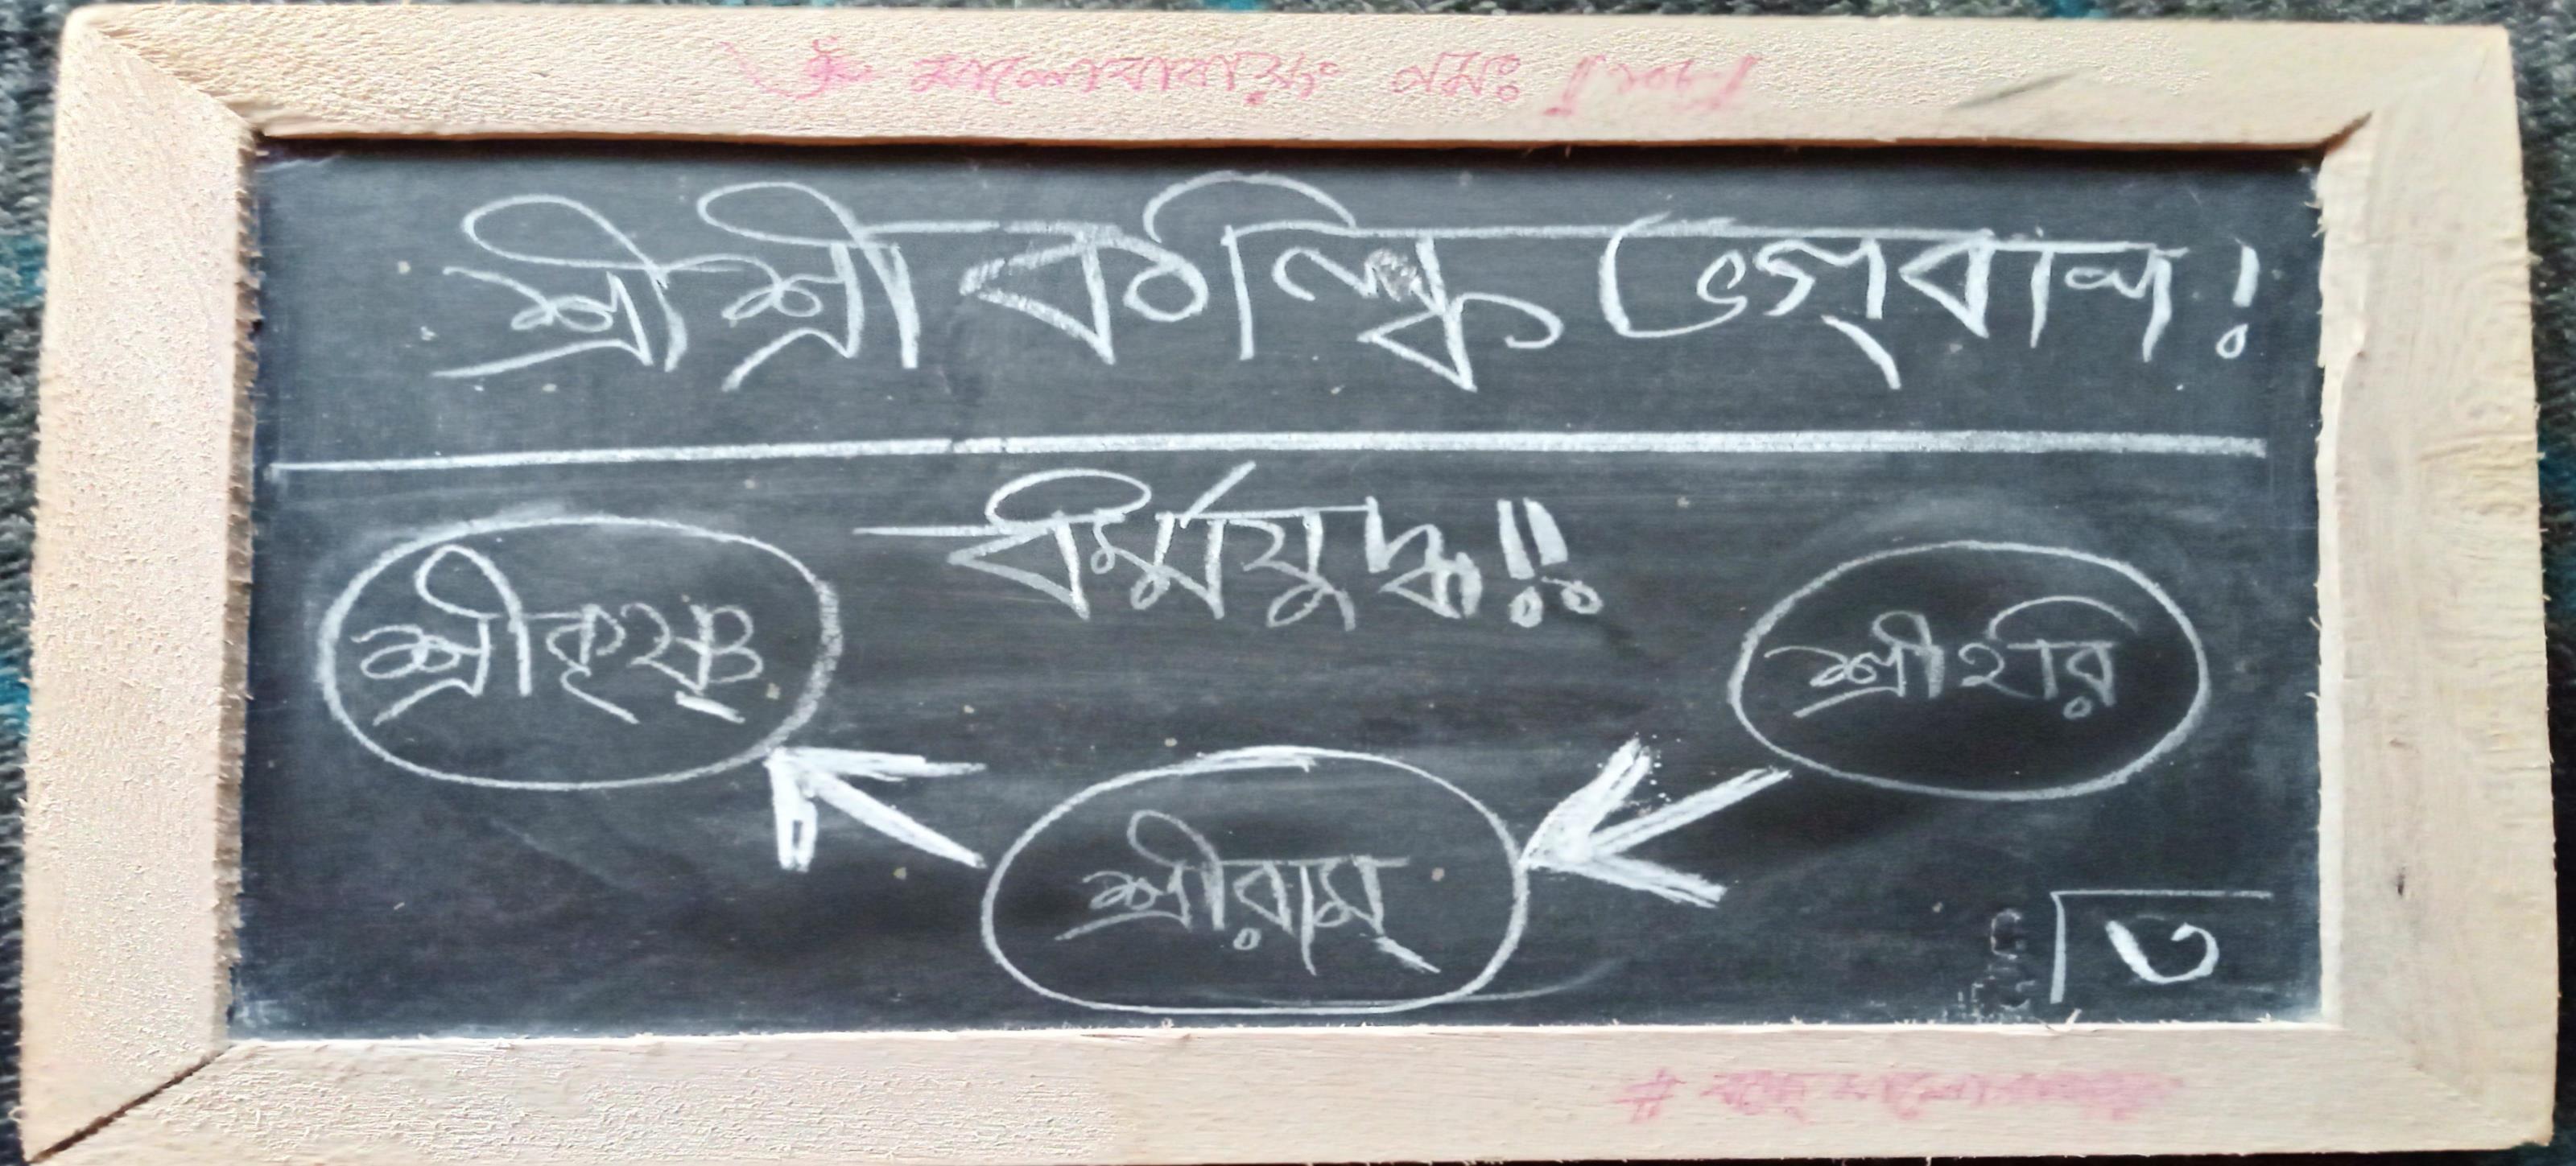 নমঃ
শ্রীশ্রী কল্কি ভগ্‌বান!
ধর্মযুদ্ধ!!
শ্রীকৃষ্ণ্
শ্রীহরি
শ্রীরাম্
৩